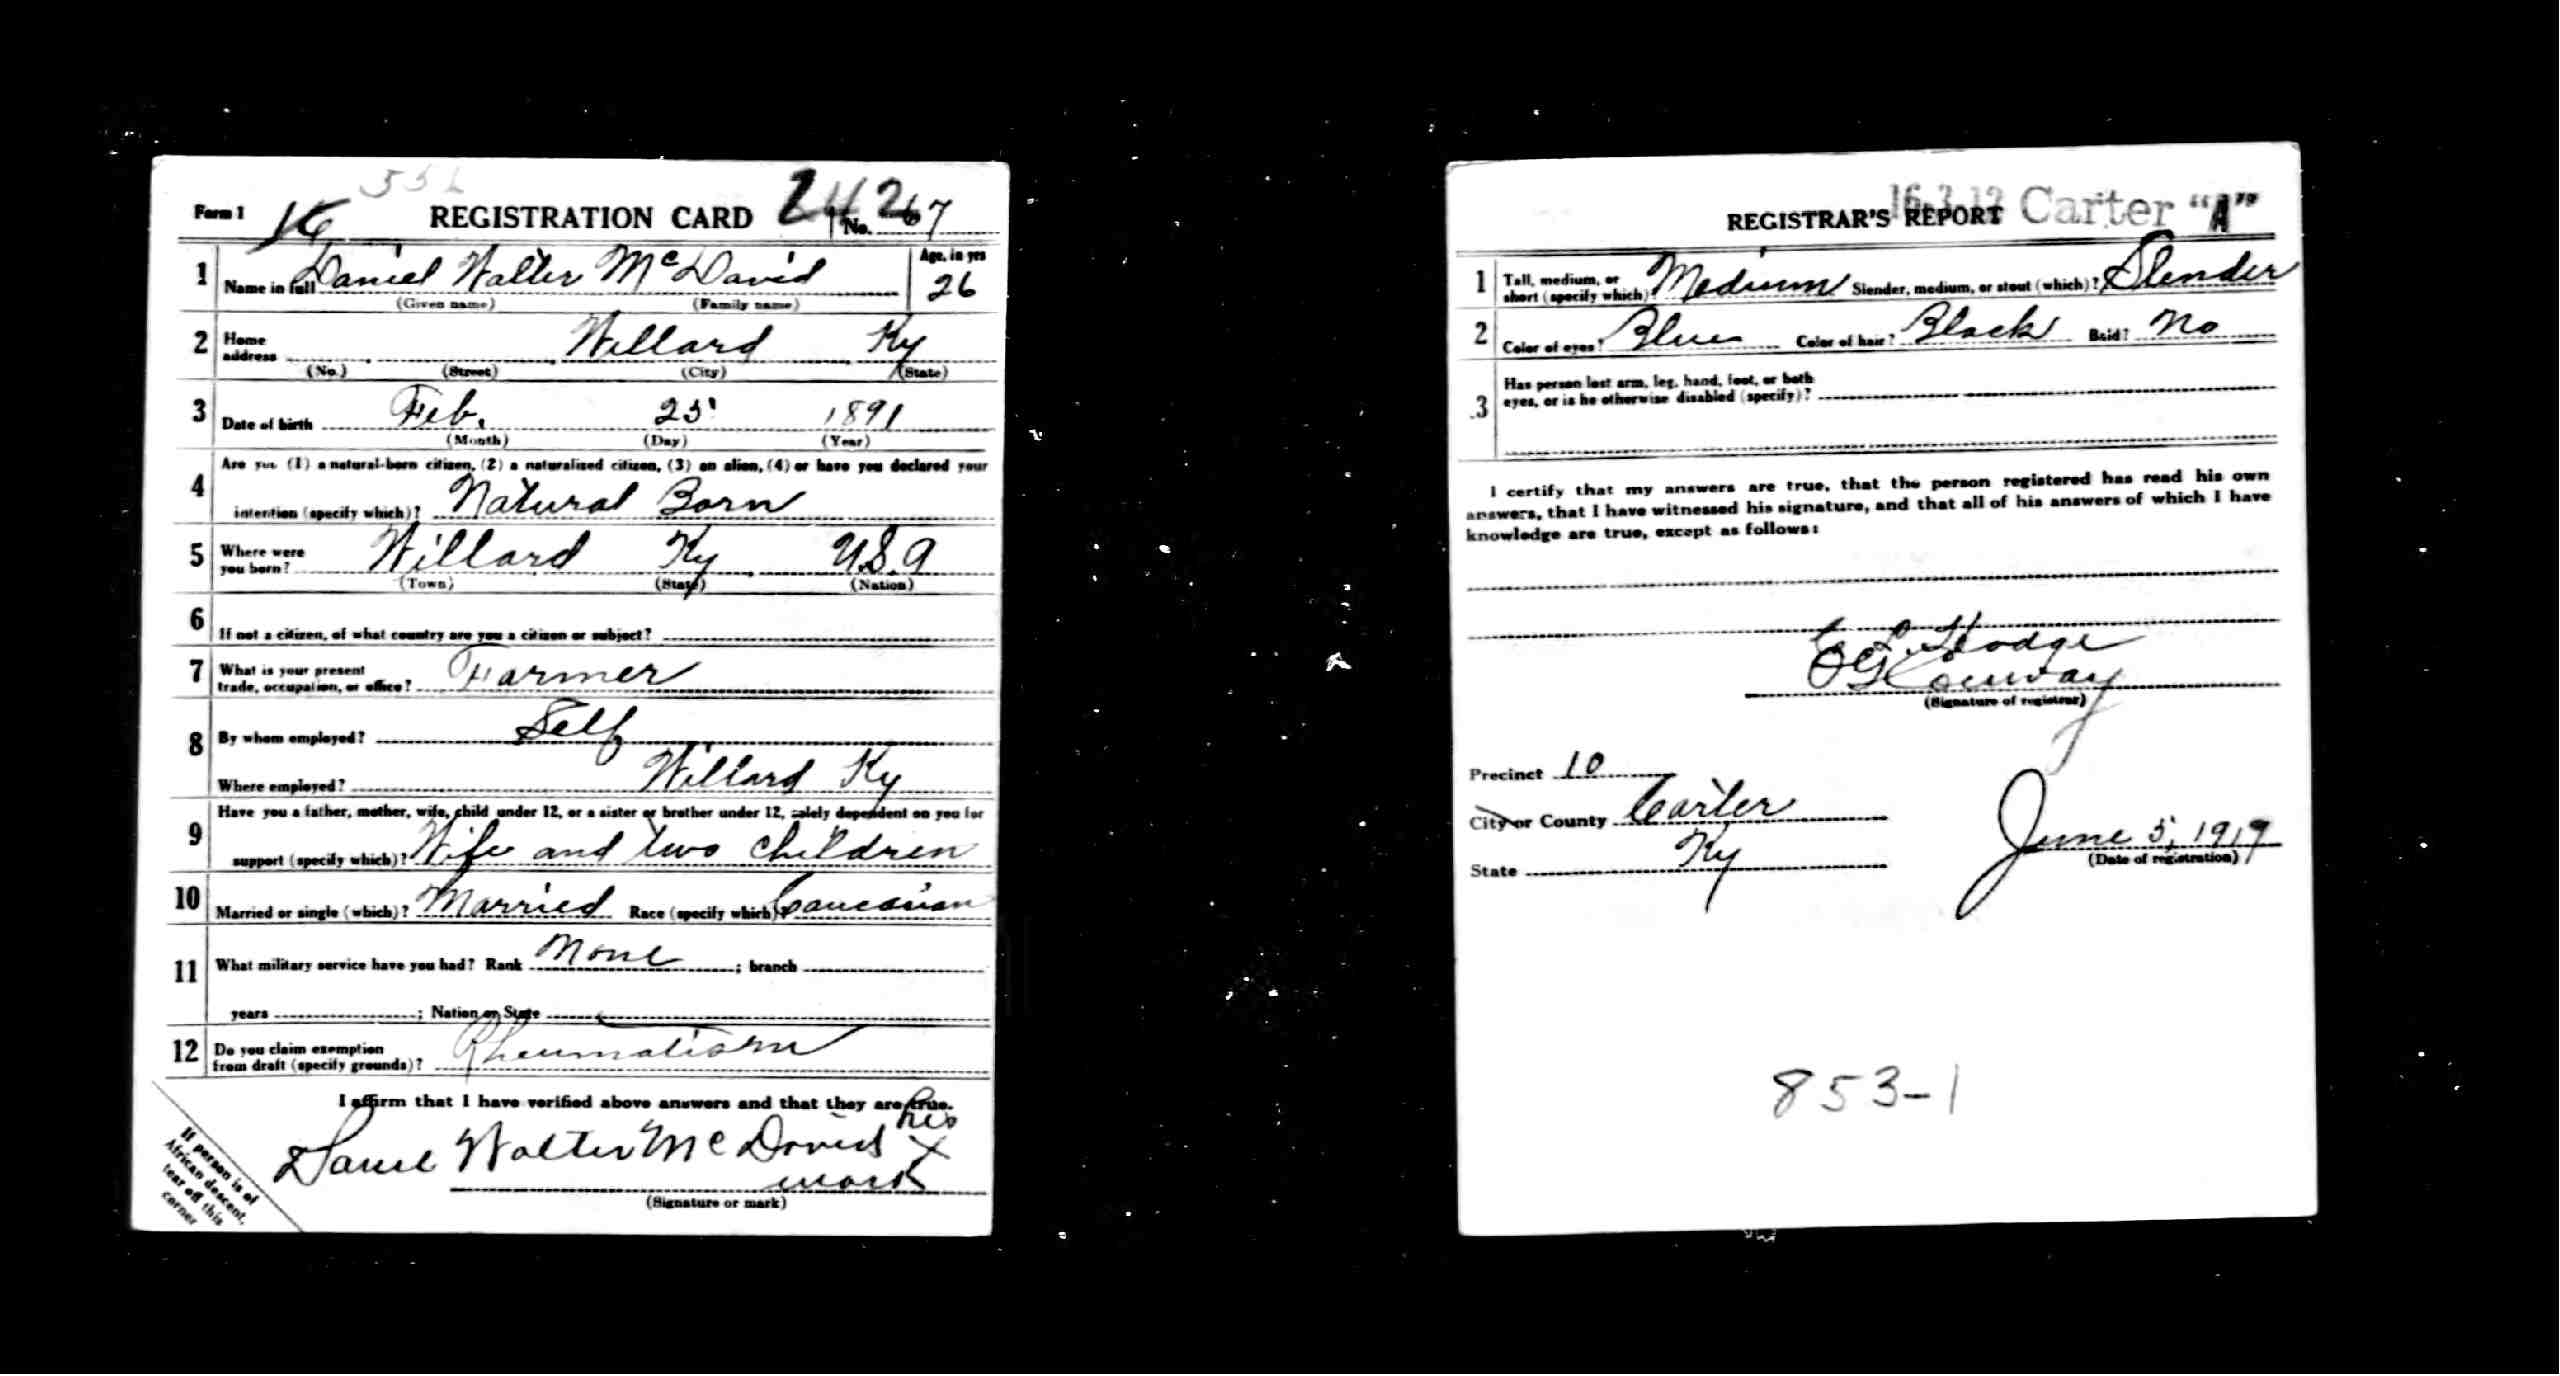 Form 1 16 REGISTRATION CARD No. 67
1 Name in full Daniel Walter McDavid Age, in yrs 26
(Given name) (Family name)
2 Home address Willard Ky
(No.) (Street) (City) (State)
3 Date of birth Feb. 25 1891
(Month) (Day) (Year)
4 Are you (1) a natural-born citizen, (2) a naturalized citizen, (3) an alien, (4) or have you declared your
intention (specify which)? Natural Born
5 Where were you born? Willard Ky U.S.A
(Town) (State) (Nation)
6 If not a citizen, of what country are you a citizen or subject?
7 What is your present trade, occupation, or office? Farmer
8 By whom employed? Self
Where employed? Willard Ky
9 Have you a father, mother, wife, child under 12, or a sister or brother under 12, solely dependent on you for
support (specify which)? Wife and two children
10 Married or single (which)? Married Race (specify which)? Caucasian
11 What military service have you had? Rank None ; branch
years ; Nation or State
12 Do you claim exemption from draft (specify grounds)? Rheumatism
I affirm that I have verified above answers and that they are true.
his
Daniel Walter McDavid X
mark
(Signature or mark)
If person is of
African descent,
tear off this
corner
REGISTRAR'S REPORT 16-3-12 Carter "A"
1 Tall, medium, or short (specify which)? Medium Slender, medium, or stout (which)? Slender
2 Color of eyes? Blue Color of hair? Black Bald? No
3 Has person lost arm, leg, hand, foot, or both
eyes, or is he otherwise disabled (specify)?
I certify that my answers are true, that the person registered has read his own
answers, that I have witnessed his signature, and that all of his answers of which I have
knowledge are true, except as follows:
L. Hodge
Conway
(Signature of registrar)
Precinct 10
City or County Carter
State Ky
June 5, 1917
(Date of registration)
853-1